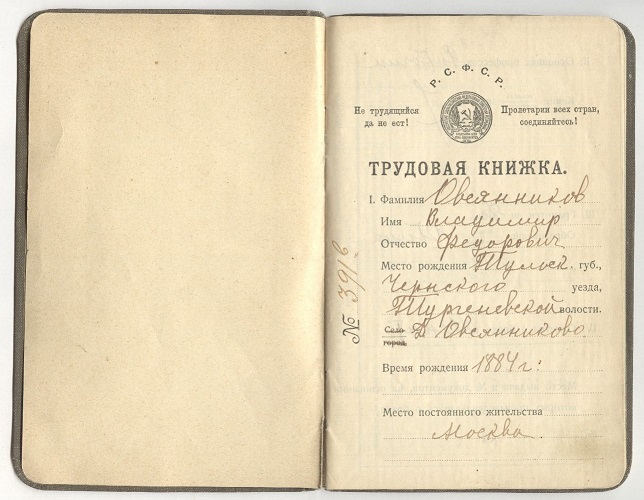 Р. С. Ф. С. Р.
Не трудящийся да не ест!
Пролетарии всех стран, соединяйтесь!
ТРУДОВАЯ КНИЖКА.
I. Фамилия Овсянников
Имя Владимир
Отчество Федорович
Место рождения Тульск. губ.,
Чернского уезда,
Тургеневской волости.
Село Д. Овсянниково.
город.
Время рождения 1884 г.
Место постоянного жительства
Москва.
№ 391